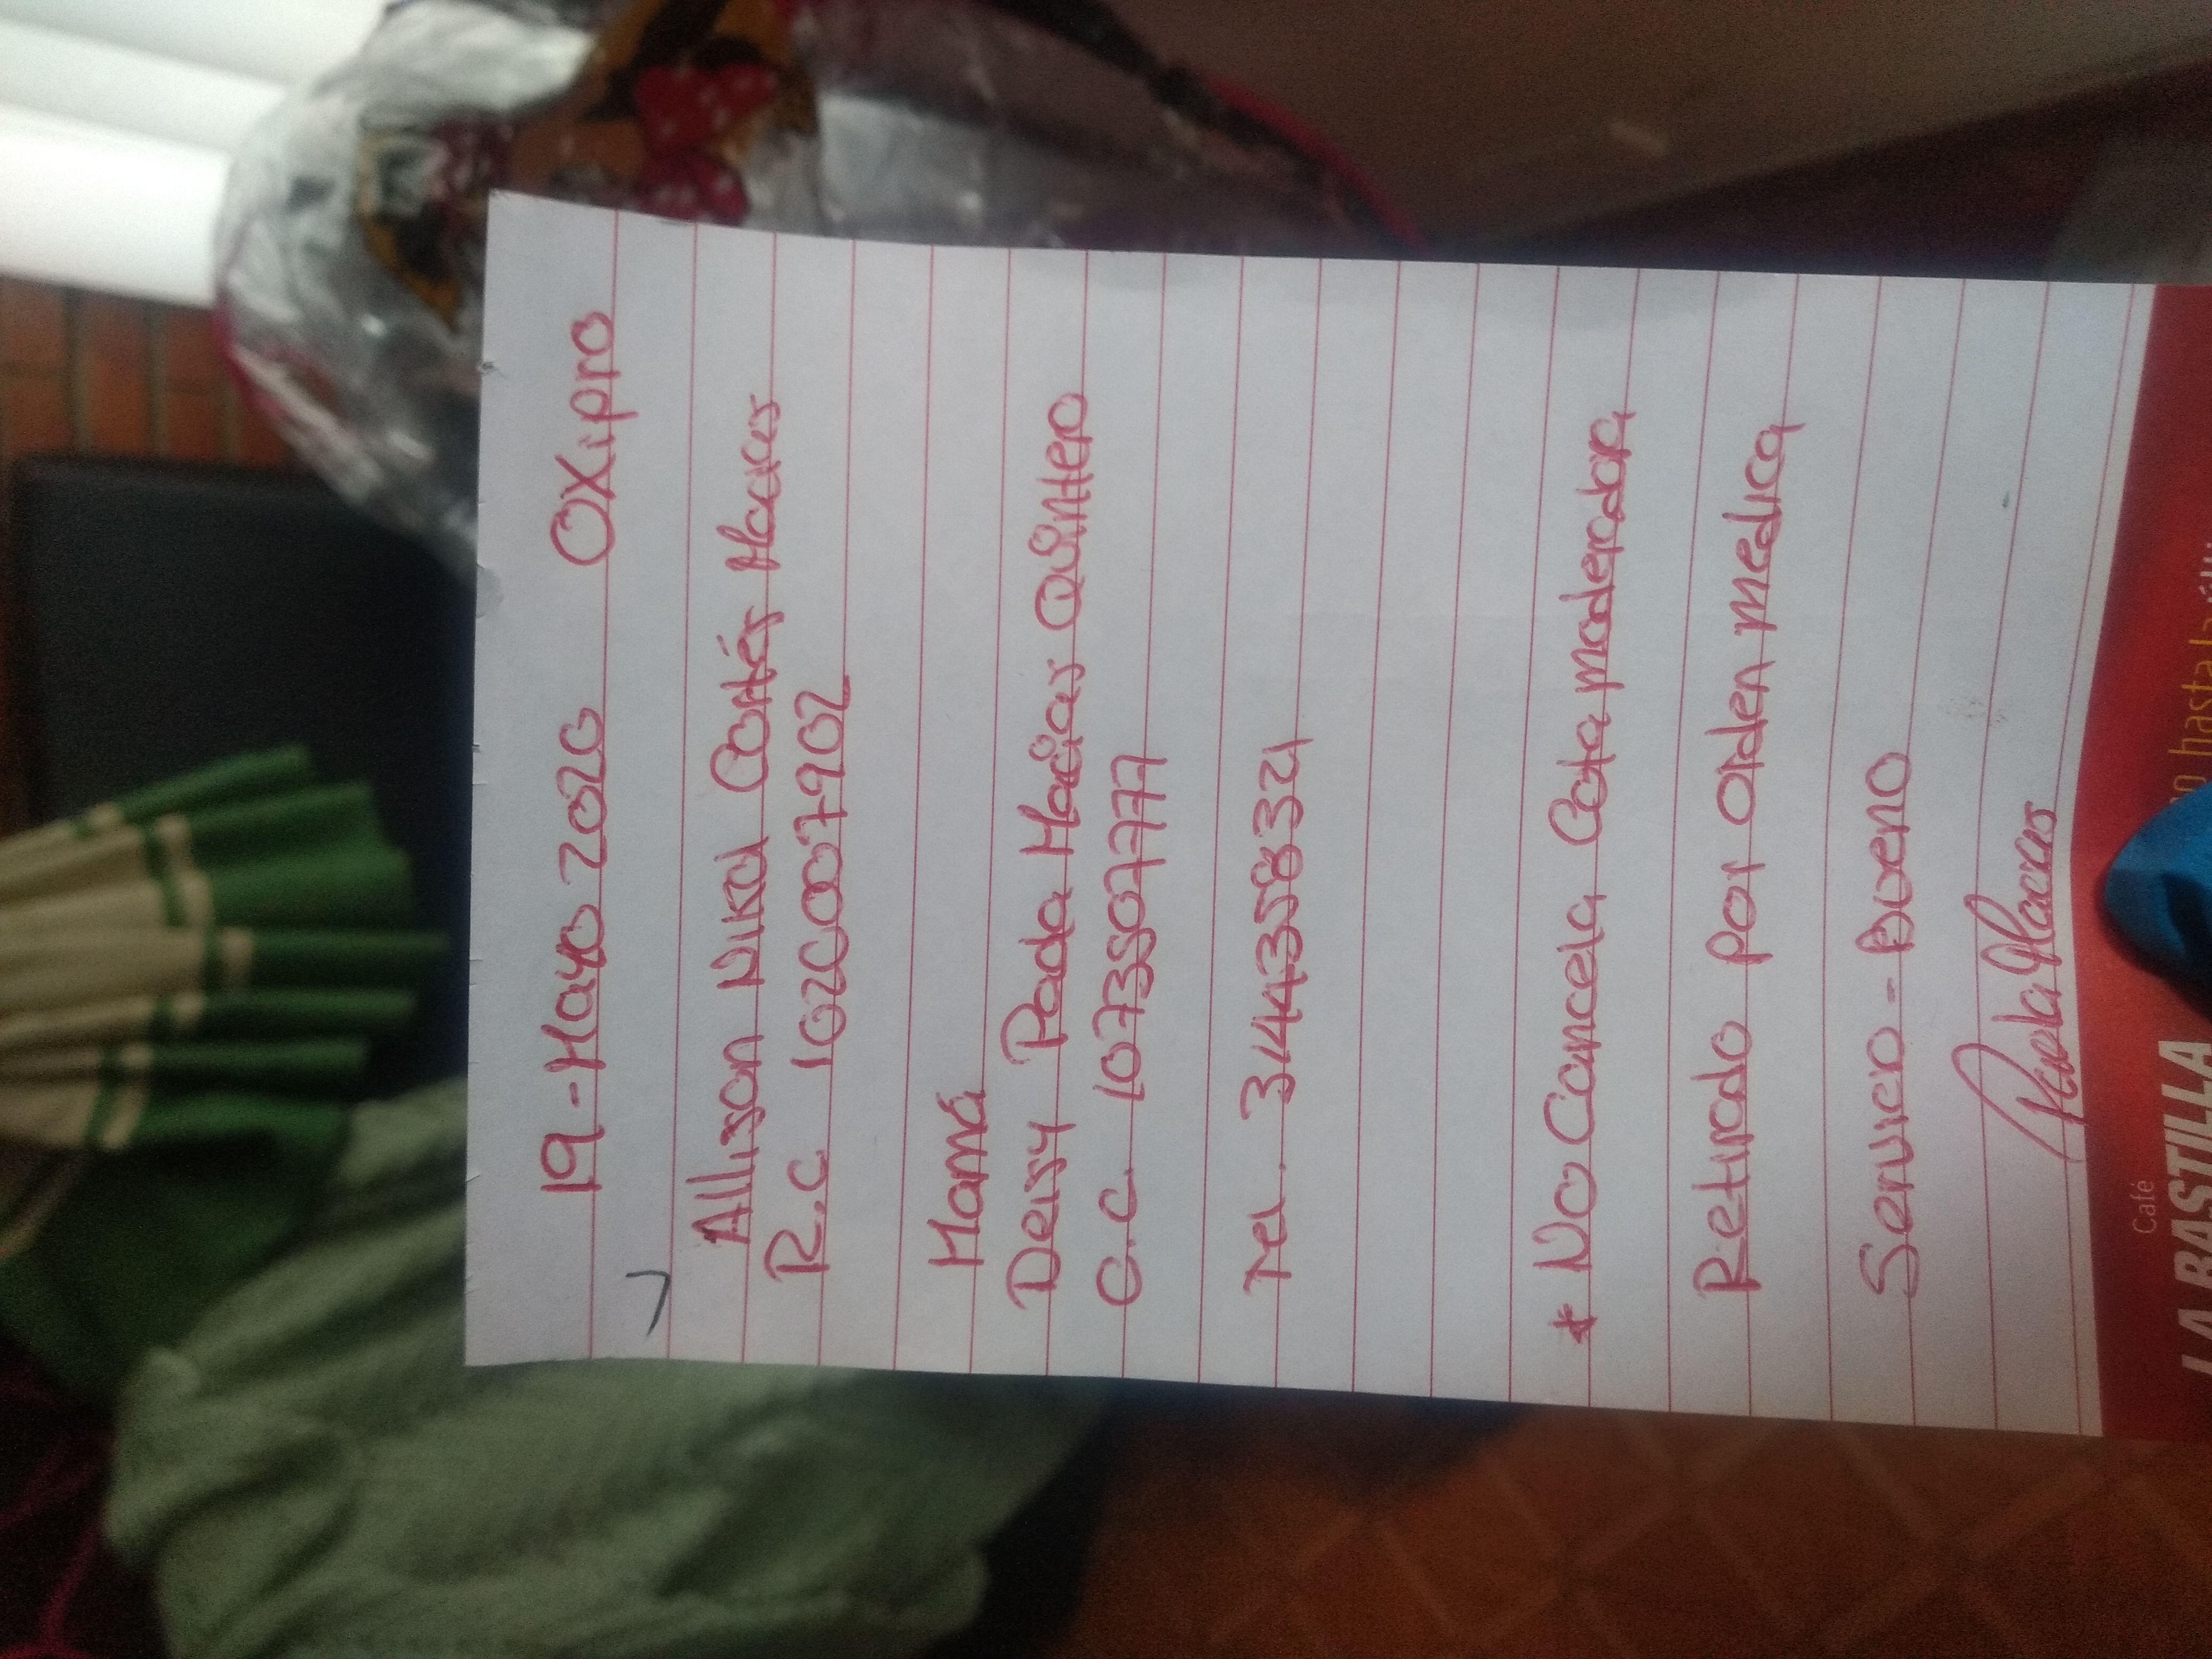 19-Mayo 2020 Oxipro
Allison Nikol Cortés Macias
R.C 1020007902
Mamá
Deisy Paola Macias Quintero
C.C. 1073507777
Tel. 3144358321
* No Cancela Cota moderadora
Retirado por orden medica
Servicio - Bueno
Paola Macias
Café
LA BASTILLA
hasta la